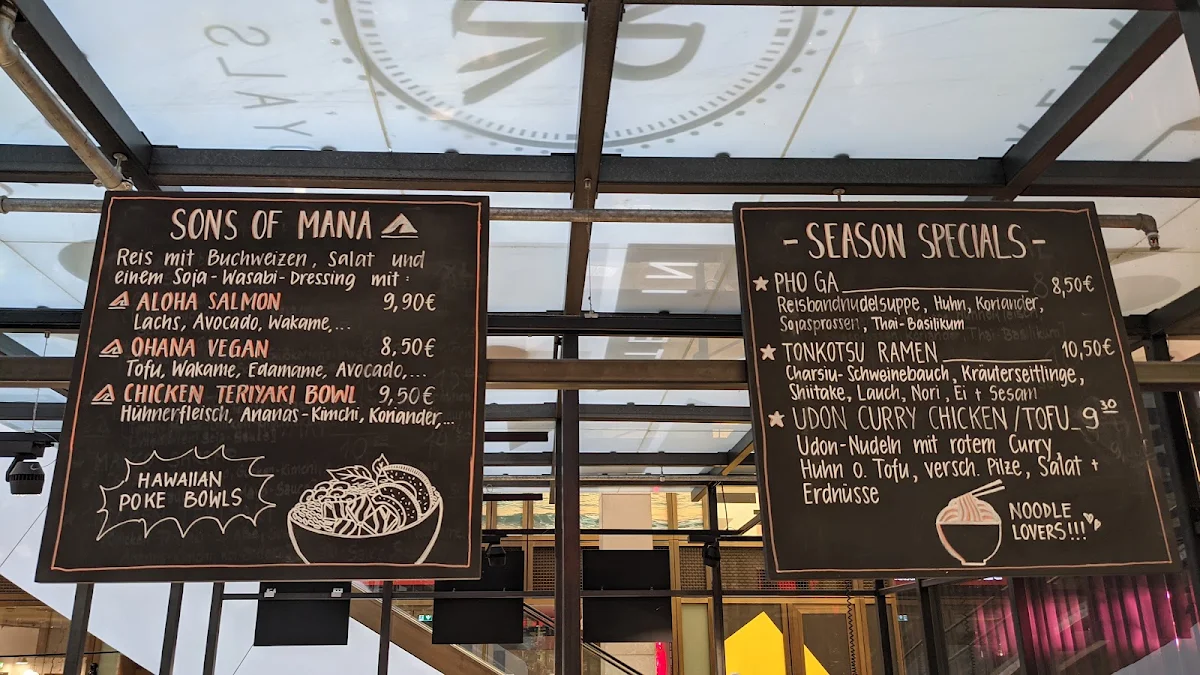 SONS OF MANA
Reis mit Buchweizen, Salat und
einem Soja-Wasabi-Dressing mit:
ALOHA SALMON 9,90€
Lachs, Avocado, Wakame,...
OHANA VEGAN 8,50€
Tofu, Wakame, Edamame, Avocado,...
CHICKEN TERIYAKI BOWL 9,50€
Hühnerfleisch, Ananas-Kimchi, Koriander,...
HAWAIIAN
POKE BOWLS
- SEASON SPECIALS -
PHO GA 8,50€
Reisbandnudelsuppe, Huhn, Koriander,
Sojasprossen, Thai-Basilikum
TONKOTSU RAMEN 10,50€
Charsiu-Schweinebauch, Kräuterseitlinge,
Shiitake, Lauch, Nori, Ei + Sesam
UDON CURRY CHICKEN/TOFU 9 30
Udon-Nudeln mit rotem Curry,
Huhn o. Tofu, versch. Pilze, Salat +
Erdnüsse
NOODLE
LOVERS!!!